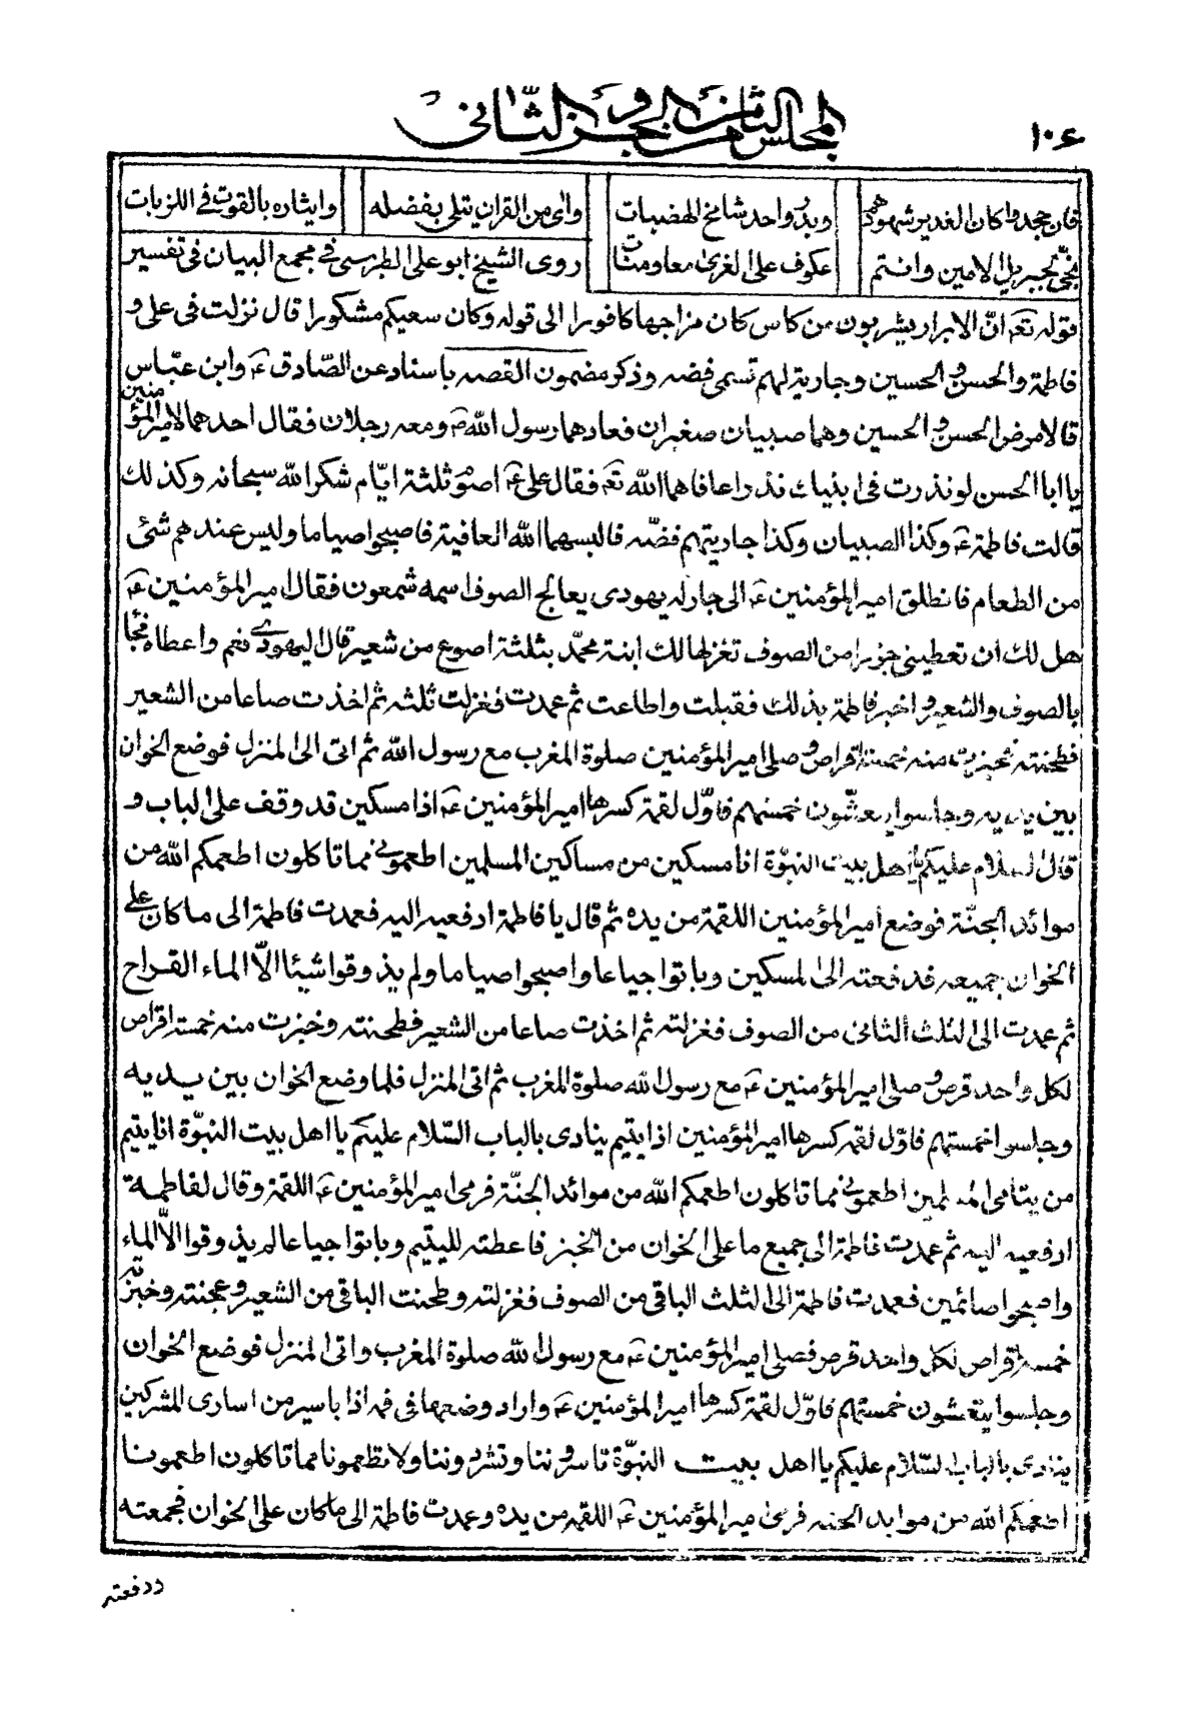 ١٠٦
المجلس الثامن من الجزء الثانى
فان جحدوا كان الغدير شهودهم وبدر واحد شامخ الهضبات واى من القران يتلى بفضله وايثاره بالقوت فى اللزبات
نجى لجبريل الامين وانتم عكوف على الغرى معا ومنات
روى الشيخ ابو على الطبرسى فى مجمع البيان فى تفسير
قوله تع انّ الابرار يشربون من كاس كان مزاجها كافورا الى قوله وكان سعيكم مشكورا قال نزلت فى على و
فاطمة والحسن والحسين وجارية لهم تسمى فضه وذكر مضمون القصه باسناد عن الصّادق ع وابن عبّاس
قالا مرض الحسن والحسين وهما صبيان صغيران فعادهما رسول الله ص ومعه رجلان فقال احدهما لامير المؤمنين
يا ابا الحسن لو نذرت فى ابنيك نذرا عافاهما الله تع فقال على ع اصوم ثلثة ايّام شكر الله سبحانه وكذلك
قالت فاطمة ع وكذا الصبيان وكذا جاريتهم فضّه فالبسهما الله العافية فاصبحوا صياما وليس عندهم شئ
من الطعام فانطلق امير المؤمنين ع الى جار له يهودى يعالج الصوف اسمه شمعون فقال امير المؤمنين ع
هل لك ان تعطينى جزرا من الصوف تغزلها لك ابنة محمّد بثلثة اصوع من شعير قال اليهودى نعم واعطاه فجا
بالصوف والشعير واخبر فاطمة بذلك فقبلت واطاعت ثم عمدت فغزلت ثلثه ثم اخذت صاعا من الشعير
فطحنته وخبزت منه خمسة اقراص وصلى امير المؤمنين صلوة المغرب مع رسول الله ثم اتى الى المنزل فوضع الخوان
بين يديه وجلسوا يتعشّون خمستهم فاوّل لقمة كسرها امير المؤمنين ع اذا مسكين قد وقف على الباب و
قال السلام عليكم يا اهل بيت النبوّة انا مسكين من مساكين المسلمين اطعمونى مما تاكلون اطعمكم الله من
موائد الجنّة فوضع امير المؤمنين اللقمة من يده ثم قال يا فاطمة ادفعيه اليه فعمدت فاطمة الى ما كان على
الخوان جميعه فدفعته الى المسكين وباتوا جياعا واصبحوا صياما ولم يذوقوا شيئا الاّ الماء القراح
ثم عمدت الى الثلث الثانى من الصوف فغزلته ثم اخذت صاعا من الشعير فطحنته وخبزت منه خمسة اقراص
لكل واحد قرص وصلى امير المؤمنين ع مع رسول الله صلوة المغرب ثم اتى المنزل فلما وضع الخوان بين يديه
وجلسوا خمستهم فاوّل لقمه كسرها امير المؤمنين اذا يتيم ينادى بالباب السّلام عليكم يا اهل بيت النبوّة انا يتيم
من يتامى المسلمين اطعمونى مما تاكلون اطعمكم الله من موائد الجنّة فرمى امير المؤمنين ع اللقمة وقال لفاطمة
ادفعيه اليه ثم عمدت فاطمة الى جميع ما على الخوان من الخبز فاعطته لليتيم وباتوا جياعا لم يذوقوا الاّ الماء
واصبحوا صائمين فعمدت فاطمة الى الثلث الباقى من الصوف فغزلته وطحنت الباقى من الشعير وعجنته وخبزته
خمسة اقراص لكل واحد قرص فصلى امير المؤمنين ع مع رسول الله صلوة المغرب واتى المنزل فوضع الخوان
وجلسوا يتعشون خمستهم فاوّل لقمة كسرها امير المؤمنين ع واراد وضعها فى فمه اذا باسير من اسارى المشركين
ينادى بالباب السّلام عليكم يا اهل بيت النبوّة تاسروننا وتشردوننا ولا تطعمونا مما تاكلون اطعمونا
اطعمكم الله من موايد الجنه فرمى امير المؤمنين ع اللقمه من يده وعمدت فاطمة الى ما كان على الخوان فجمعته
ودفعته